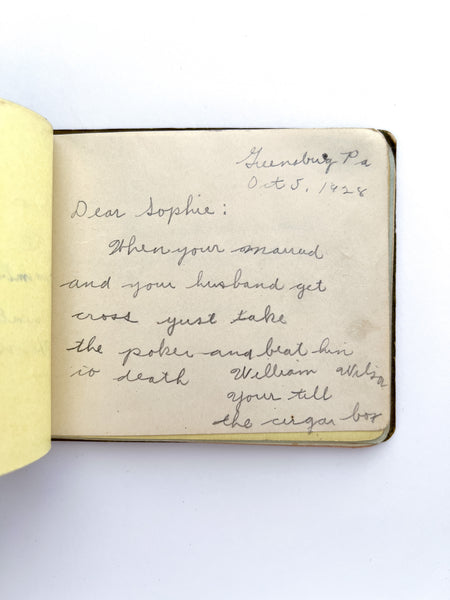 Greensburg Pa
Oct 5, 1928
Dear Sophie:
When your mauad
and your husband get
cross yust take
the poker and beat him
io death William Wilson
Your till
the cirgar box